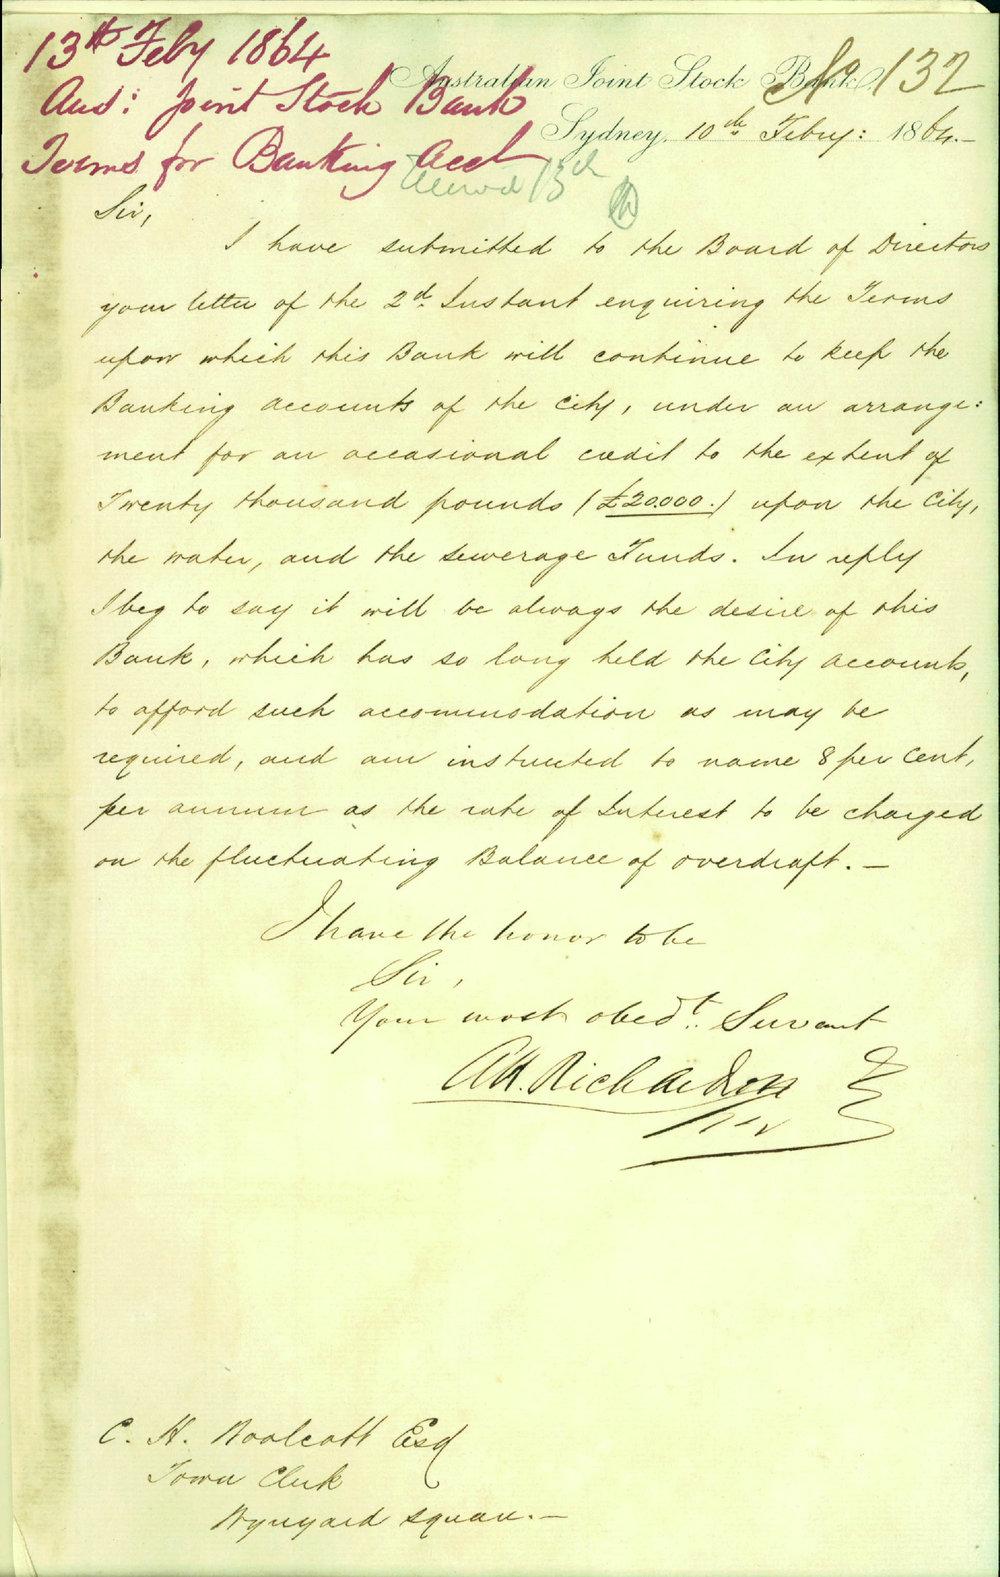 13th Feby 1864
Aus: Joint Stock Bank
Terms for Banking Acct
No 132
Australian Joint Stock Bank
Sydney, 10th Febry: 1864.—
13th
Sir,
I have submitted to the Board of Directors
your letter of the 2d. Instant enquiring the Terms
upon which this Bank will continue to keep the
Banking accounts of the City, under an arrange:
ment for an occasional credit to the extent of
Twenty thousand pounds (£20.000.) upon the City,
the water, and the sewerage Funds. In reply
I beg to say it will be always the desire of this
Bank, which has so long held the City accounts,
to afford such accommodation as may be
required, and am instructed to name 8 per cent,
per annum as the rate of Interest to be charged
on the fluctuating Balance of overdraft.—
I have the honor to be
Sir,
Your most obedt. Servant
A H. Richardson
C. H. Woolcott Esq
Town Clerk
Wynyard square.—